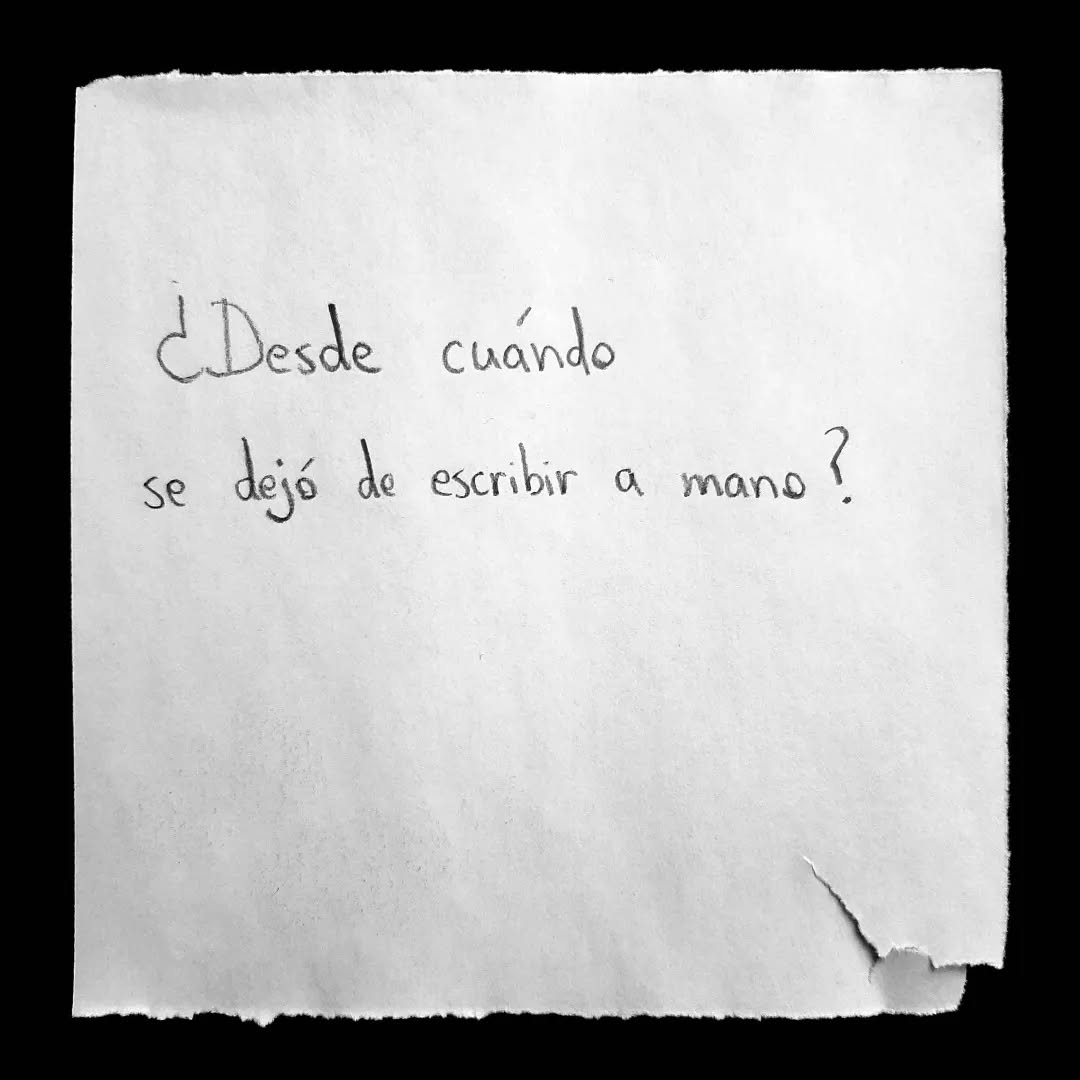 ¿Desde cuándo
se dejó de escribir a mano?